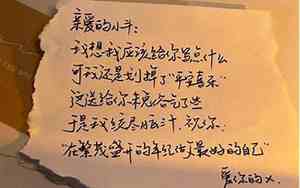 亲爱的小斗:
我想我应该给你写点什么
可我还是划掉了“平安喜乐”
说送给你未免俗气了些
于是我绞尽脑汁,祝你:
“在繁花盛开的年纪做最好的自己”
爱你的X.